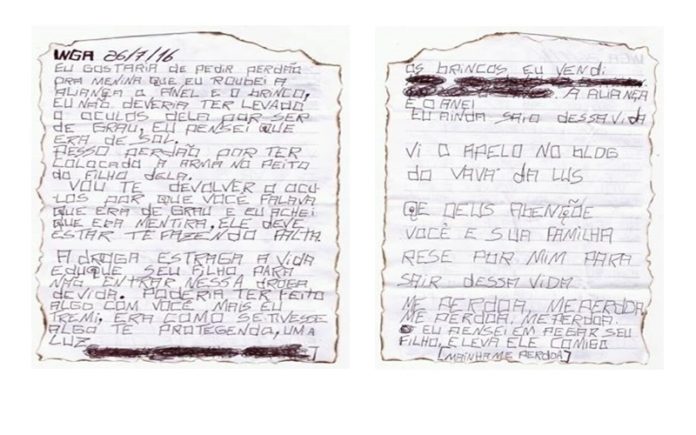 WGA 26/7/16
EU GOSTARIA DE PEDIR PERDÃO
PRA MENINA QUE EU ROUBEI A
ALIANÇA O ANEL E O BRINCO,
EU NÃO DEVERIA TER LEVADO
O OCULOS DELA POR SER
DE GRAU, EU PENSEI QUE
ERA DE SOL.
PESSO PERDÃO POR TER
COLOCADO A ARMA NO PEITO
DO FILHO DELA.
VOU TE DEVOLVER O OCU-
LOS POR QUE VOCÊ FALAVA
QUE ERA DE GRAU E EU ACHEI
QUE ERA MENTIRA, ELE DEVE
ESTAR TE FAZENDO FALTA
A DROGA ESTRAGA A VIDA
EDUQUE SEU FILHO PARA
NÃO ENTRAR NESSA DROGA
DE VIDA. PODERIA TER FEITO
ALGO COM VOCÊ MAIS EU
TREMI, ERA COMO SE TIVESSE
ALGO TE PROTEGENDO, UMA
LUZ
OS BRINCOS EU VENDI
A ALIANÇA
E O ANEL
EU AINDA SAIO DESSA VIDA
VI O APELO NO BLOG
DO VAVA DA LUS
QE DEUS ABENÇÕE
VOCÊ E SUA FAMILHA
RESE POR MIM PARA
SAIR DESSA VIDA
ME PERDOA, ME PERDOA,
ME PERDOA. ME PERDOA.
EU PENSEI EM PEGAR SEU
FILHO, E LEVA ELE COMIGO
[MAINHA ME PERDOA]